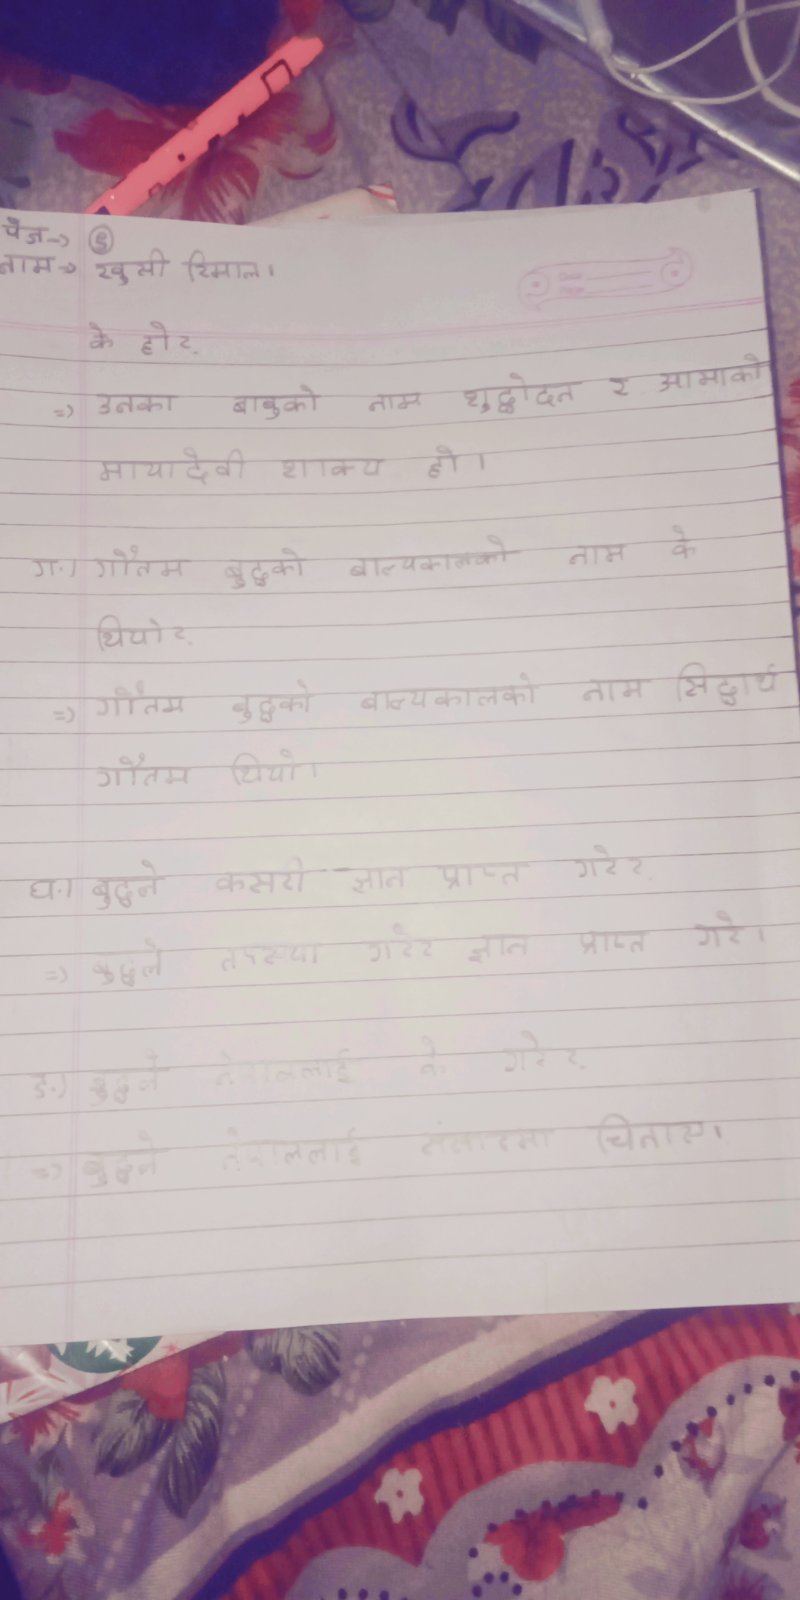 पेज→ ⑤
नाम→ खुसी रिमाल।
के हो?
=> उनका बाबुको नाम शुद्धोदन र आमाको
मायादेवी शाक्य हो।
ग.) गौतम बुद्धको बाल्यकालको नाम के
थियो?
=> गौतम बुद्धको बाल्यकालको नाम सिद्धार्थ
गौतम थियो।
घ.) बुद्धले कसरी ज्ञान प्राप्त गरे?
=> बुद्धले तपस्या गरेर ज्ञान प्राप्त गरे।
ङ.) बुद्धले नेपाललाई के गरे?
=> बुद्धले नेपाललाई संसारमा चिनाए।